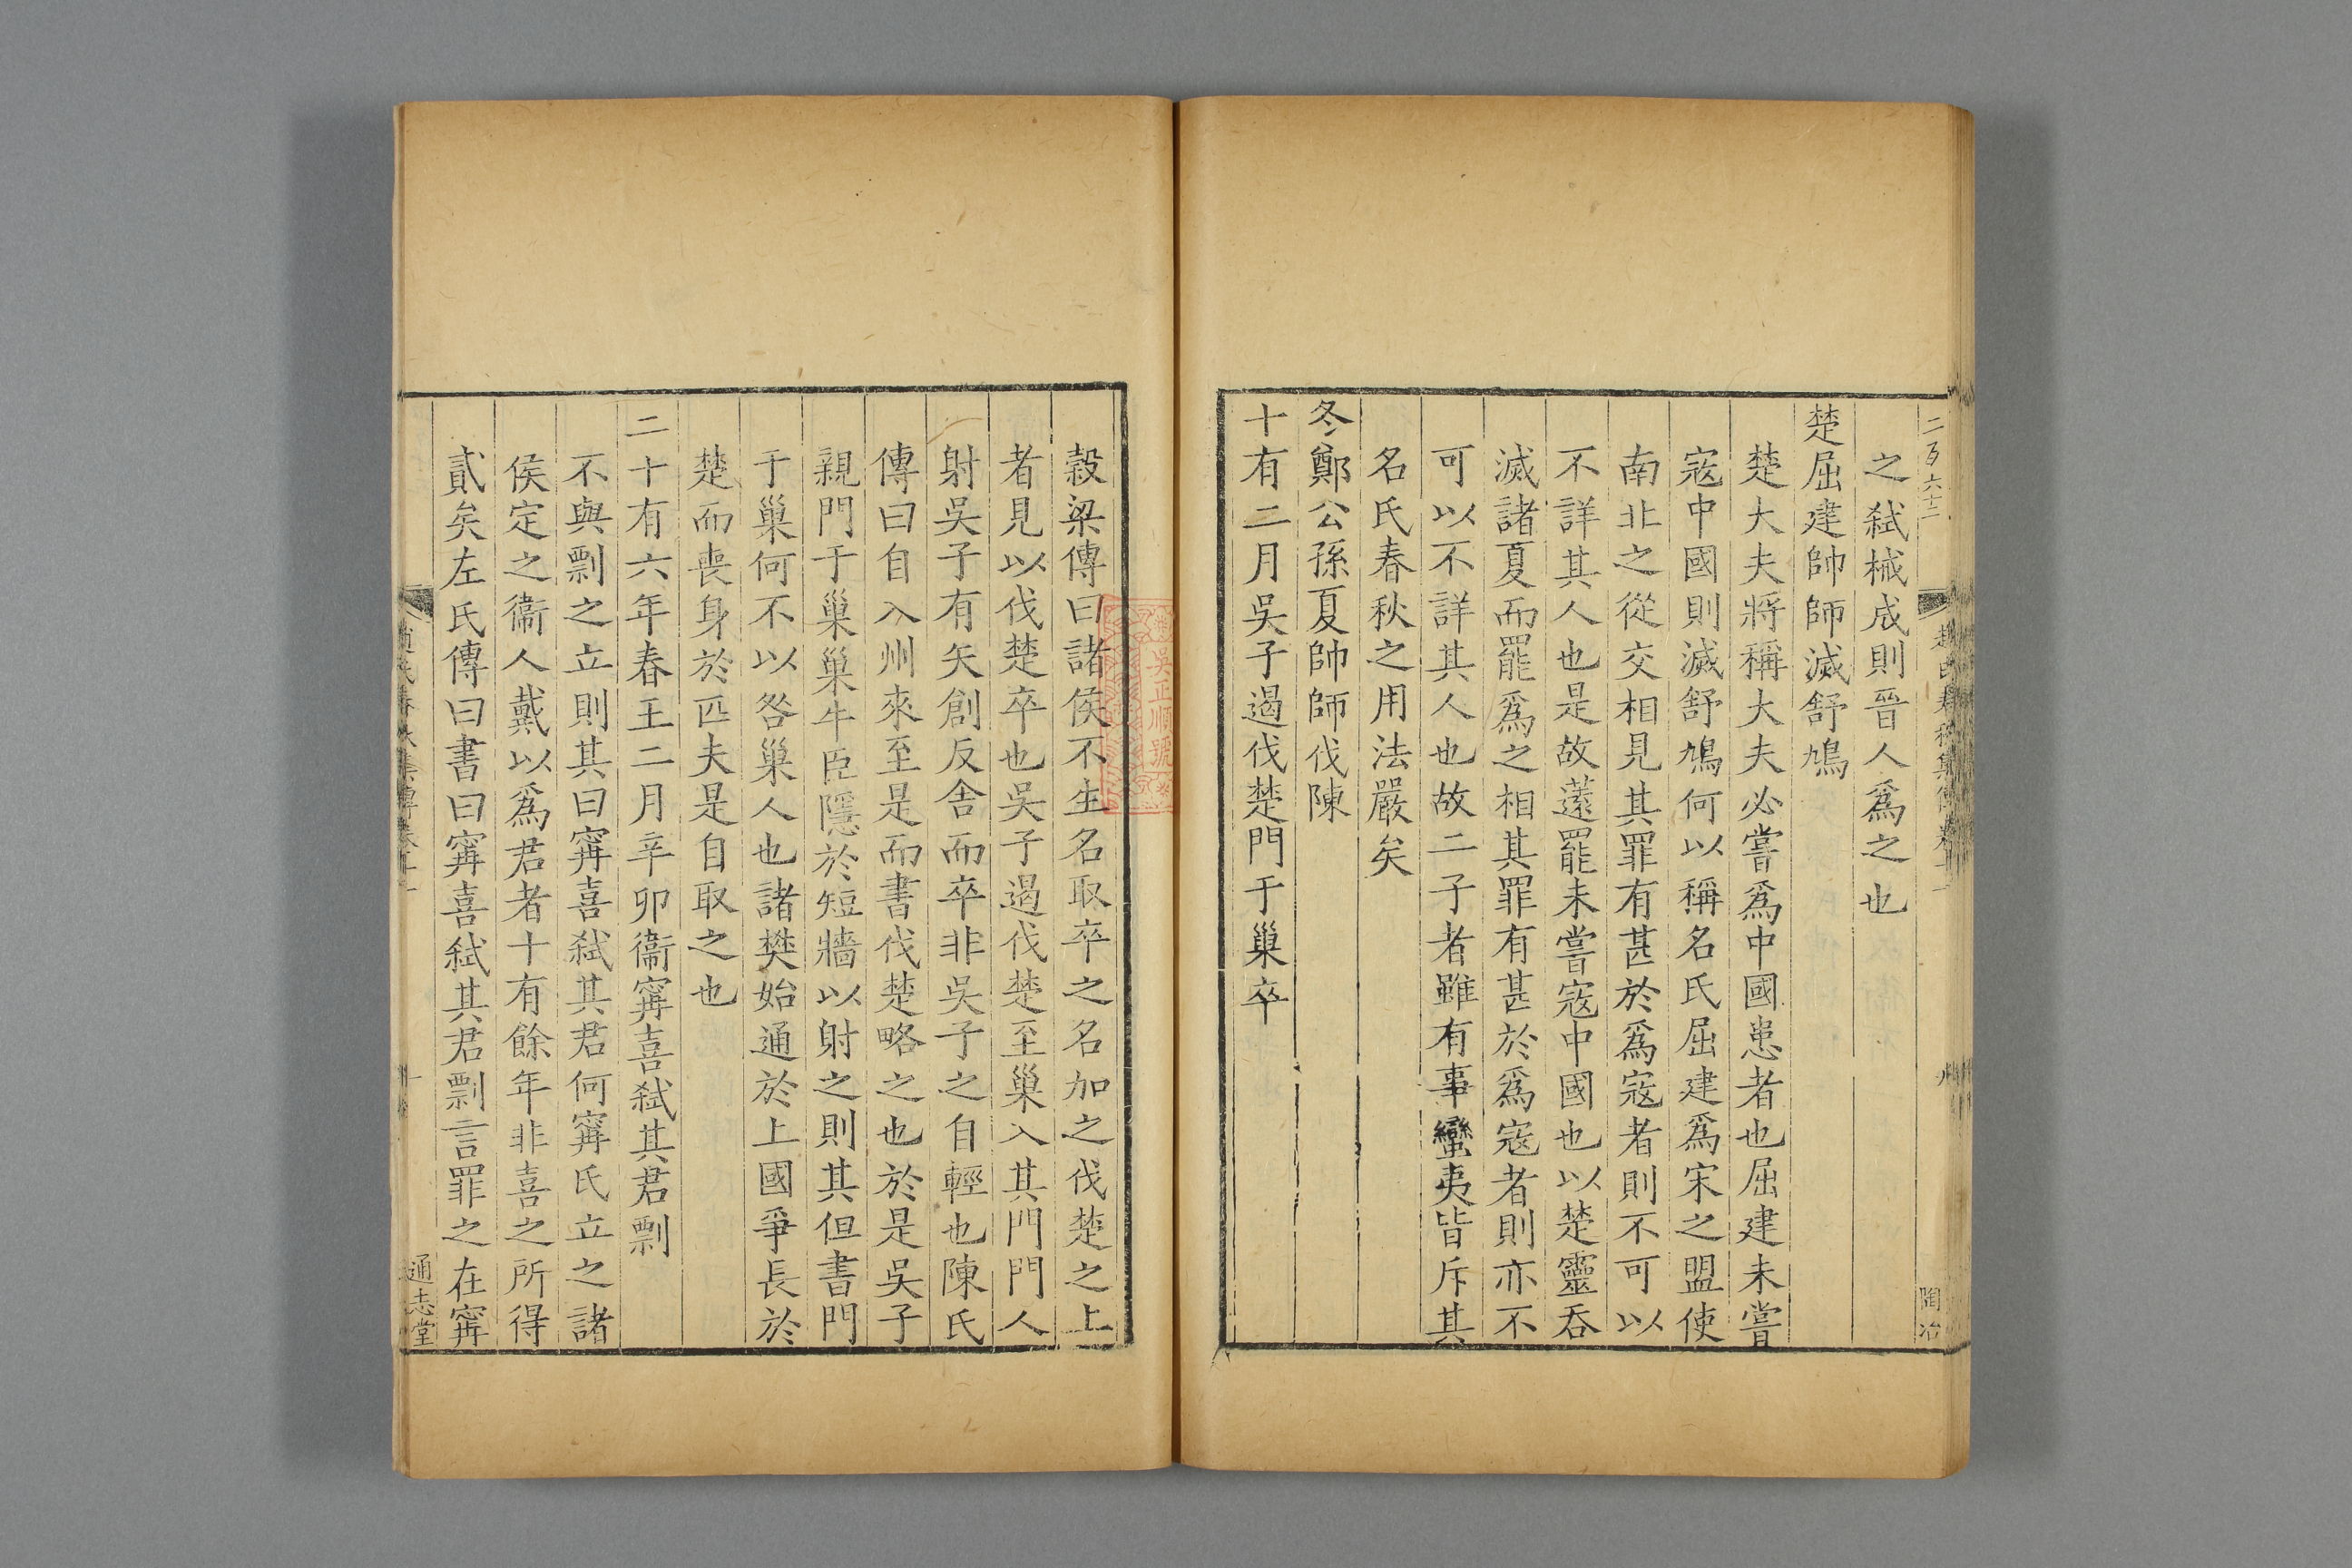 二百六十二
之弑械成則晉人爲之也
楚屈建帥師滅舒鳩
楚大夫將稱大夫必嘗爲中國患者也屈建未嘗
寇中國則滅舒鳩何以稱名氏屈建爲宋之盟使
南北之從交相見其罪有甚於爲寇者則不可以
不詳其人也是故薳罷未嘗寇中國也以楚靈吞
滅諸夏而罷爲之相其罪有甚於爲寇者則亦不
可以不詳其人也故二子者雖有事蠻夷皆斥其
名氏春秋之用法嚴矣
冬鄭公孫夏帥師伐陳
十有二月吳子遏伐楚門于巢卒
穀梁傳曰諸侯不生名取卒之名加之伐楚之上
者見以伐楚卒也吳子遏伐楚至巢入其門門人
射吳子有矢創反舍而卒非吳子之自輕也陳氏
傳曰自入州來至是而書伐楚略之也於是吳子
親門于巢巢牛臣隱於短牆以射之則其但書門
于巢何不以咎巢人也諸樊始通於上國爭長於
楚而喪身於匹夫是自取之也
二十有六年春王二月辛卯衞甯喜弑其君剽
不與剽之立則其曰甯喜弑其君何甯氏立之諸
侯定之衞人戴以爲君者十有餘年非喜之所得
貳矣左氏傳曰書曰甯喜弑其君剽言罪之在甯
通志堂